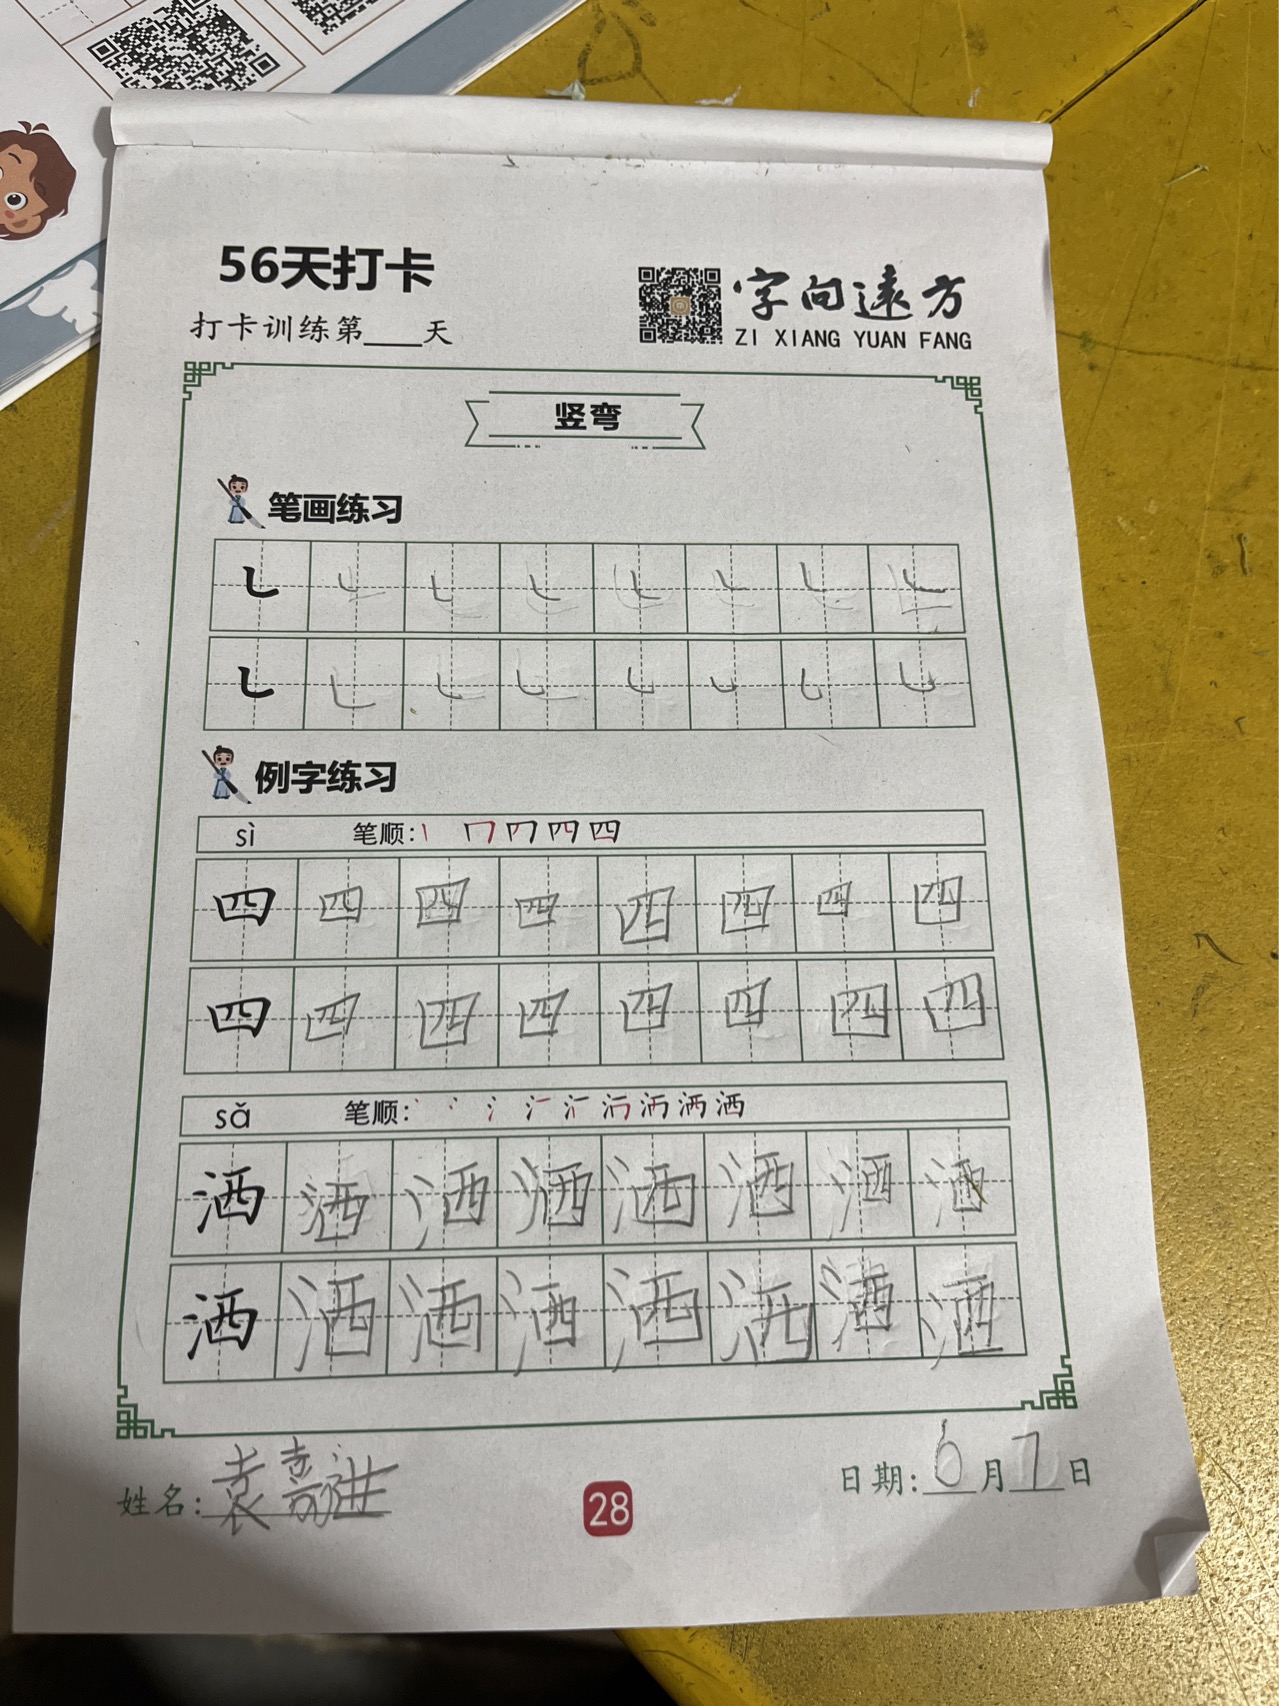 56天打卡
打卡训练第____天
字向遠方
ZI XIANG YUAN FANG
竖弯
笔画练习
例字练习
sì 笔顺: 丨 冂 四
四 四 四 四 四 四 四 四
四 四 四 四 四 四 四 四
sǎ 笔顺: 洒
洒 洒 洒 洒 洒 洒 洒 洒
洒 洒 洒 洒 洒 洒 洒 洒
姓名: 袁
28
日期: 6月7日